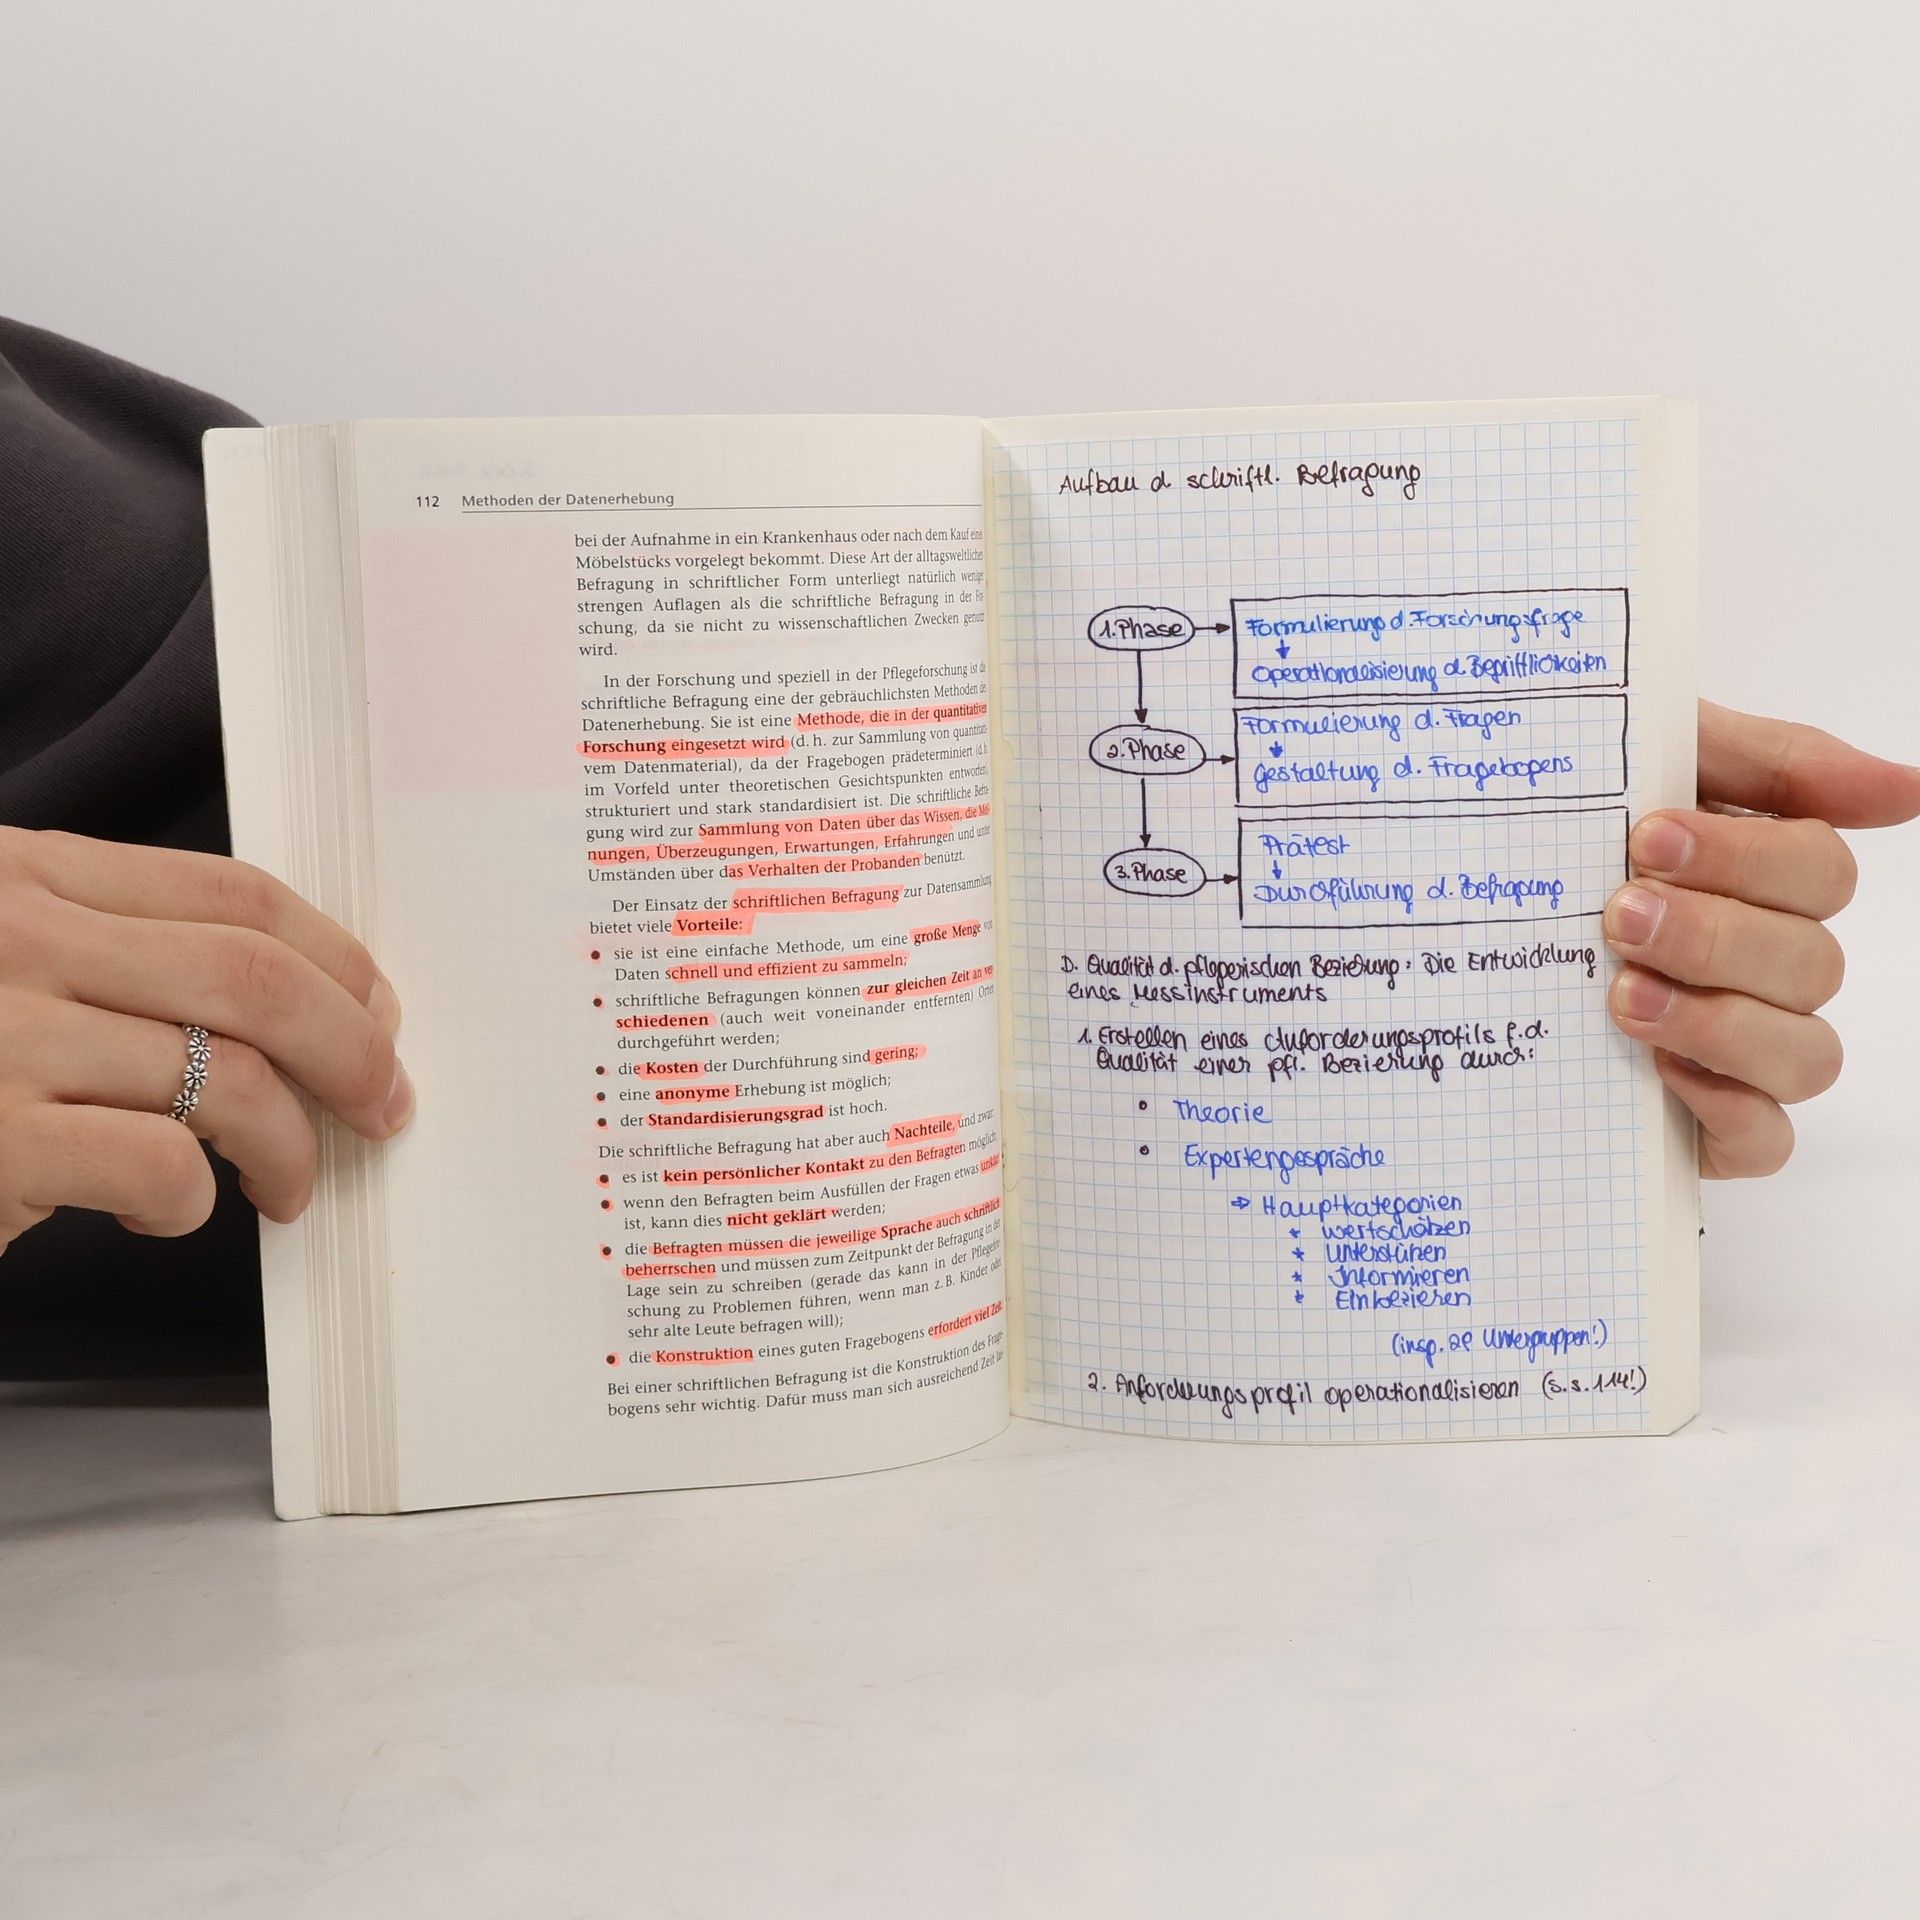 112 Methoden der Datenerhebung
bei der Aufnahme in ein Krankenhaus oder nach dem Kauf eine
Möbelstücks vorgelegt bekommt. Diese Art der alltagsweltlichen
Befragung in schriftlicher Form unterliegt natürlich wenige
strengen Auflagen als die schriftliche Befragung in der For-
schung, da sie nicht zu wissenschaftlichen Zwecken genutzt
wird.
In der Forschung und speziell in der Pflegeforschung ist die
schriftliche Befragung eine der gebräuchlichsten Methoden der
Datenerhebung. Sie ist eine Methode, die in der quantitativen
Forschung eingesetzt wird (d. h. zur Sammlung von quantitati-
vem Datenmaterial), da der Fragebogen prädeterminiert (d. h.
im Vorfeld unter theoretischen Gesichtspunkten entworfen,
strukturiert und stark standardisiert ist. Die schriftliche Befra-
gung wird zur Sammlung von Daten über das Wissen, die Mei-
nungen, Überzeugungen, Erwartungen, Erfahrungen und unter
Umständen über das Verhalten der Probanden benützt.
Der Einsatz der schriftlichen Befragung zur Datensammlung
bietet viele Vorteile:
• sie ist eine einfache Methode, um eine große Menge von
Daten schnell und effizient zu sammeln;
• schriftliche Befragungen können zur gleichen Zeit an ver-
schiedenen (auch weit voneinander entfernten) Orten
durchgeführt werden;
• die Kosten der Durchführung sind gering;
• eine anonyme Erhebung ist möglich;
• der Standardisierungsgrad ist hoch.
Die schriftliche Befragung hat aber auch Nachteile, und zwar:
• es ist kein persönlicher Kontakt zu den Befragten möglich;
• wenn den Befragten beim Ausfüllen der Fragen etwas unklar
ist, kann dies nicht geklärt werden;
• die Befragten müssen die jeweilige Sprache auch schriftlich
beherrschen und müssen zum Zeitpunkt der Befragung in der
Lage sein zu schreiben (gerade das kann in der Pflegefor-
schung zu Problemen führen, wenn man z. B. Kinder oder
sehr alte Leute befragen will);
• die Konstruktion eines guten Fragebogens erfordert viel Zeit.
Bei einer schriftlichen Befragung ist die Konstruktion des Frage-
bogens sehr wichtig. Dafür muss man sich ausreichend Zeit las-
Aufbau d schriftl. Befragung
1. Phase → Formulierung d. Forschungsfrage
↓
Operationalisierung d. Begrifflichkeiten
2. Phase → Formulierung d. Fragen
↓
Gestaltung d. Fragebogens
3. Phase → Prätest
↓
Durchführung d. Befragung
D. Qualität d. pflegerischen Beziehung: Die Entwicklung
eines Messinstruments
1. Erstellen eines Anforderungsprofils f. d.
Qualität einer pfl. Beziehung durch:
• Theorie
• Expertengespräche
⇒ Hauptkategorien
* Wertschätzen
* Unterstützen
* Informieren
* Einbeziehen
(insg. 29 Untergruppen!)
2. Anforderungsprofil operationalisieren (s. S. 114!)